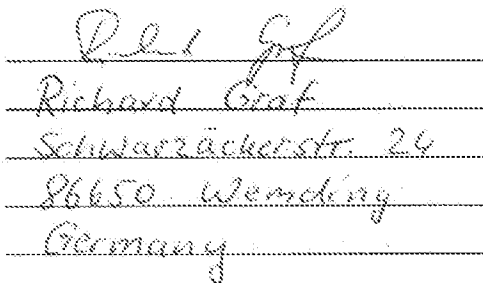 Richard Graf
Schwarzäckerstr. 24
86650 Wemding
Germany